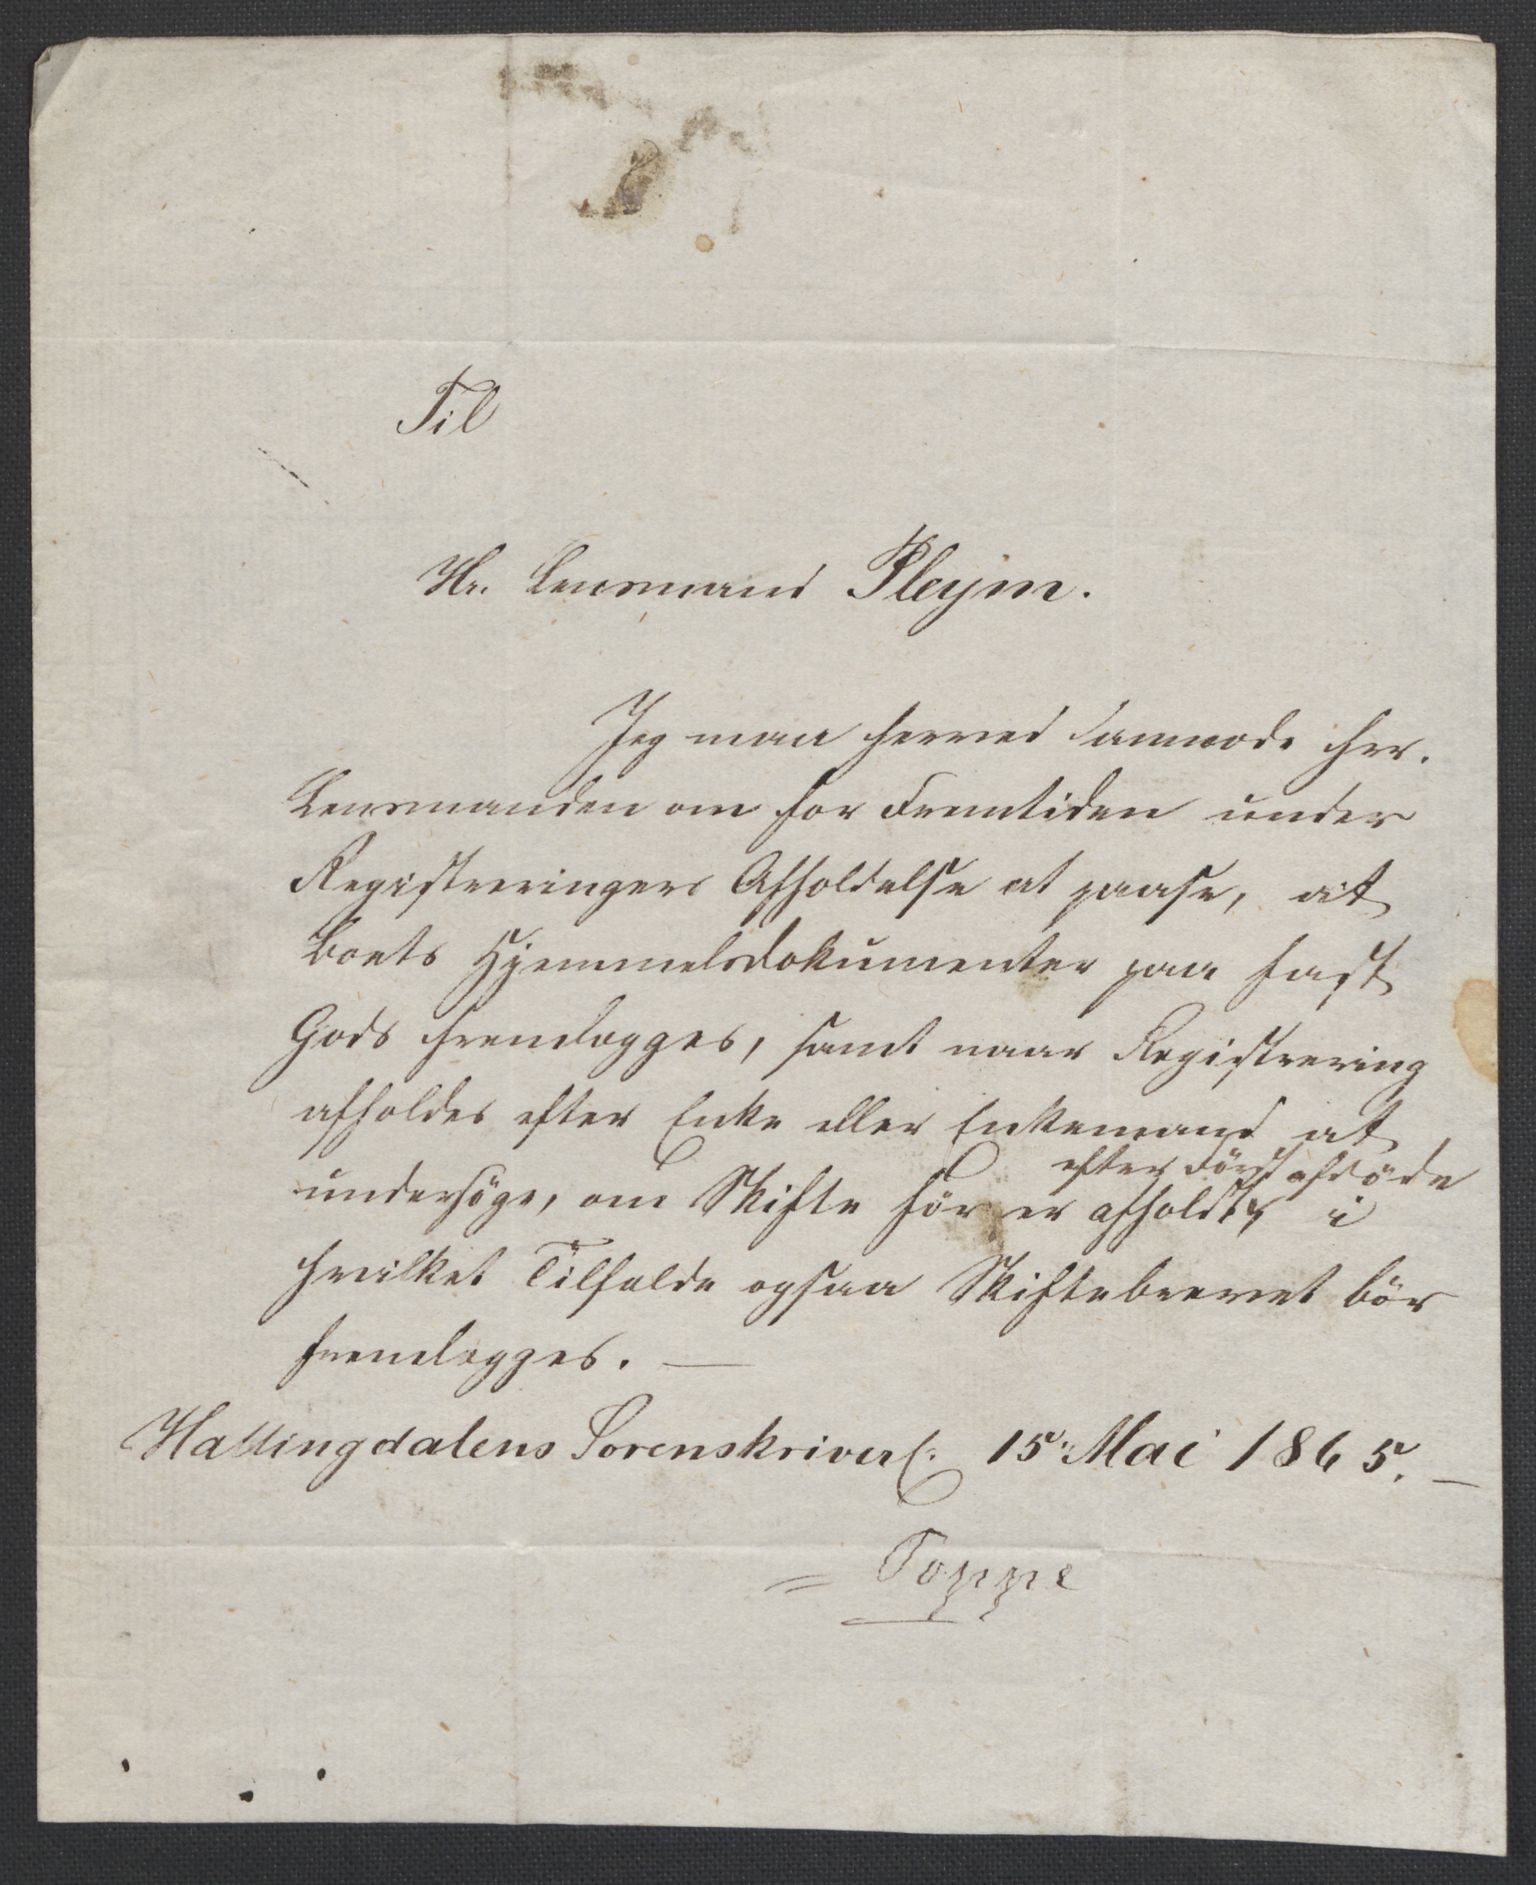 Til
Hr. Lensmand Pleym.
Jeg maa herved anmode Hr.
Lensmanden om for Fremtiden under
Registreringers Afholdelse at paase, at
Boets Hjemmelsdokumenter paa fast
Gods fremlægges, samt naar Registrering
afholdes efter Enke eller Enkemand at
efter Førstafdøde
undersöge, om Skifte før er afholdt, i
hvilket Tilfælde ogsaa Skiftebrevet bör
fremlægges. —
Hallingdalens Sorenskriverf: 15 Mai 1865. —
= Toppe